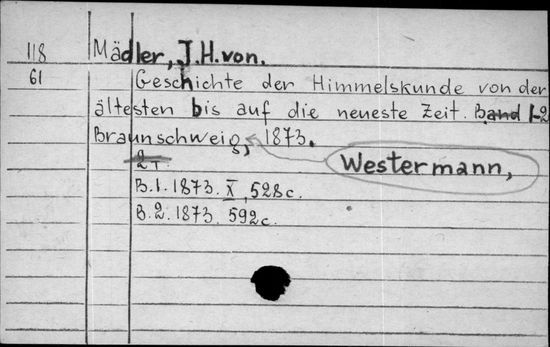 118 Mädler, J.H.von.
61 Geschichte der Himmelskunde von der
ältesten bis auf die neueste Zeit. Band 1-2
Braunschweig, 1873.
Westermann,
2т.
B.1.1873. X, 528c.
B.2.1873. 592c.